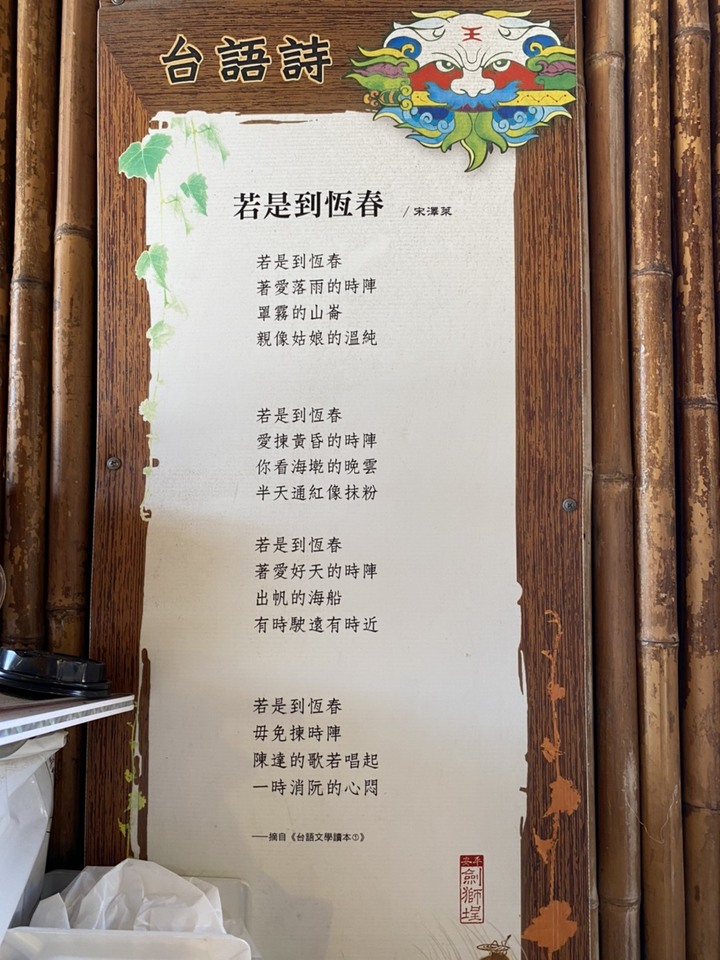 台語詩
王
若是到恆春 /宋澤萊
若是到恆春
著愛落雨的時陣
罩霧的山崙
親像姑娘的溫純
若是到恆春
愛揀黃昏的時陣
你看海墘的晚雲
半天通紅像抹粉
若是到恆春
著愛好天的時陣
出帆的海船
有時駛遠有時近
若是到恆春
毋免揀時陣
陳達的歌若唱起
一時消阮的心悶
──摘自《台語文學讀本①》
安平
劍獅埕